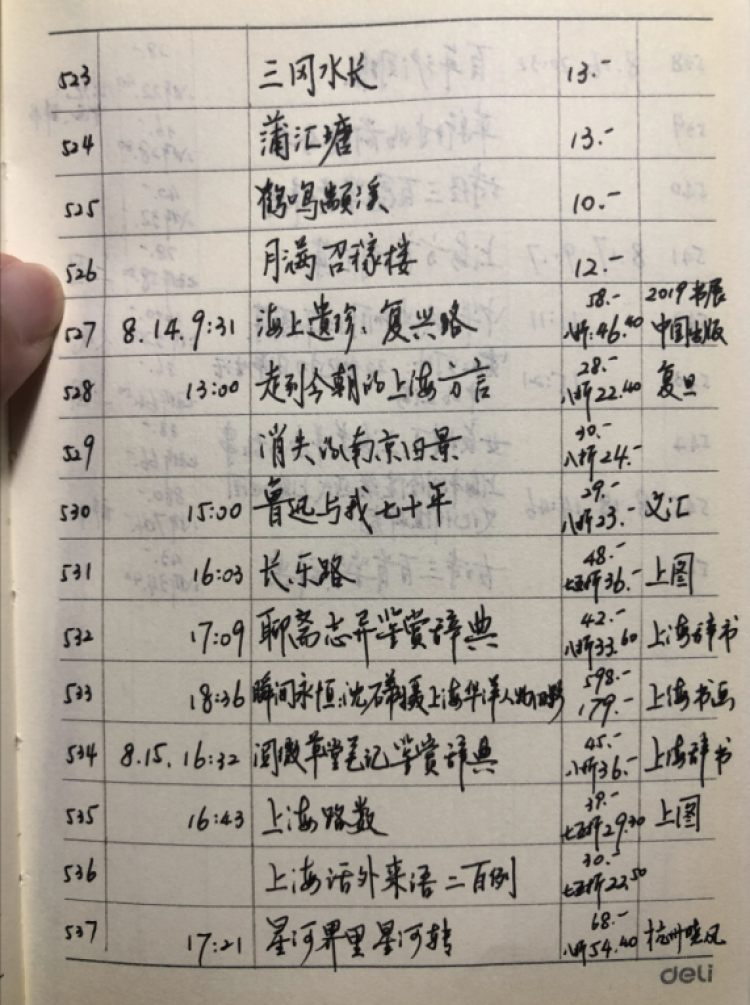 523 三冈水长 13.-
524 蒲汇塘 13.-
525 鹤鸣颛溪 10.-
526 月满召稼楼 12.-
58.- 2019书展
527 8.14. 9:31 海上遗珍:复兴路 八折:46.40 中国出版
28.-
528 13:00 走到今朝的上海方言 八折22.40 复旦
30.-
529 消失的南京旧景 八折24.-
29.-
530 15:00 鲁迅与我七十年 八折23.- 文汇
48.-
531 16:03 长乐路 七五折36.- 上图
42.-
532 17:09 聊斋志异鉴赏辞典 八折33.60 上海辞书
598.-
533 18:36 瞬间永恒:沈石蒂摄上海华洋人物旧影 179.- 上海书画
45.-
534 8.15. 16:32 阅微草堂笔记鉴赏辞典 八折36.- 上海辞书
39.-
535 16:43 上海路数 七五折29.30 上图
30.-
536 上海话外来语二百例 七五折22.50
68.-
537 17:21 星河界里星河转 八折54.40 杭州晓风
deli